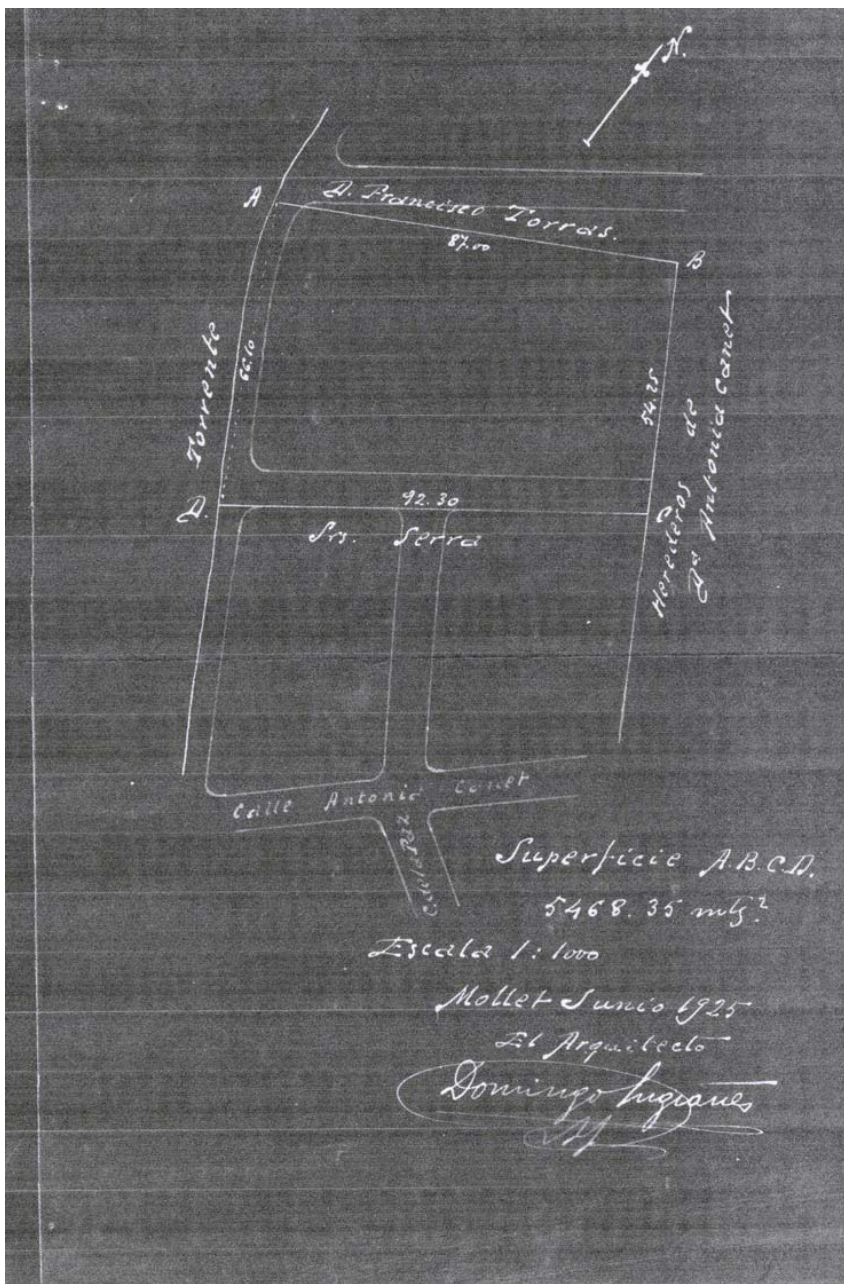 N.
A
D. Francisco Torras.
87.00
B
Torrente
66.10
54.25
Herederos de
Dª Antonia Canet
D.
92.30
C
Srs. Serra
Calle Antonia Canet
C. de la Paz
Superficie A.B.C.D.
5468.35 mts²
Escala 1:1000
Mollet Junio 1925
El Arquitecto
Domingo